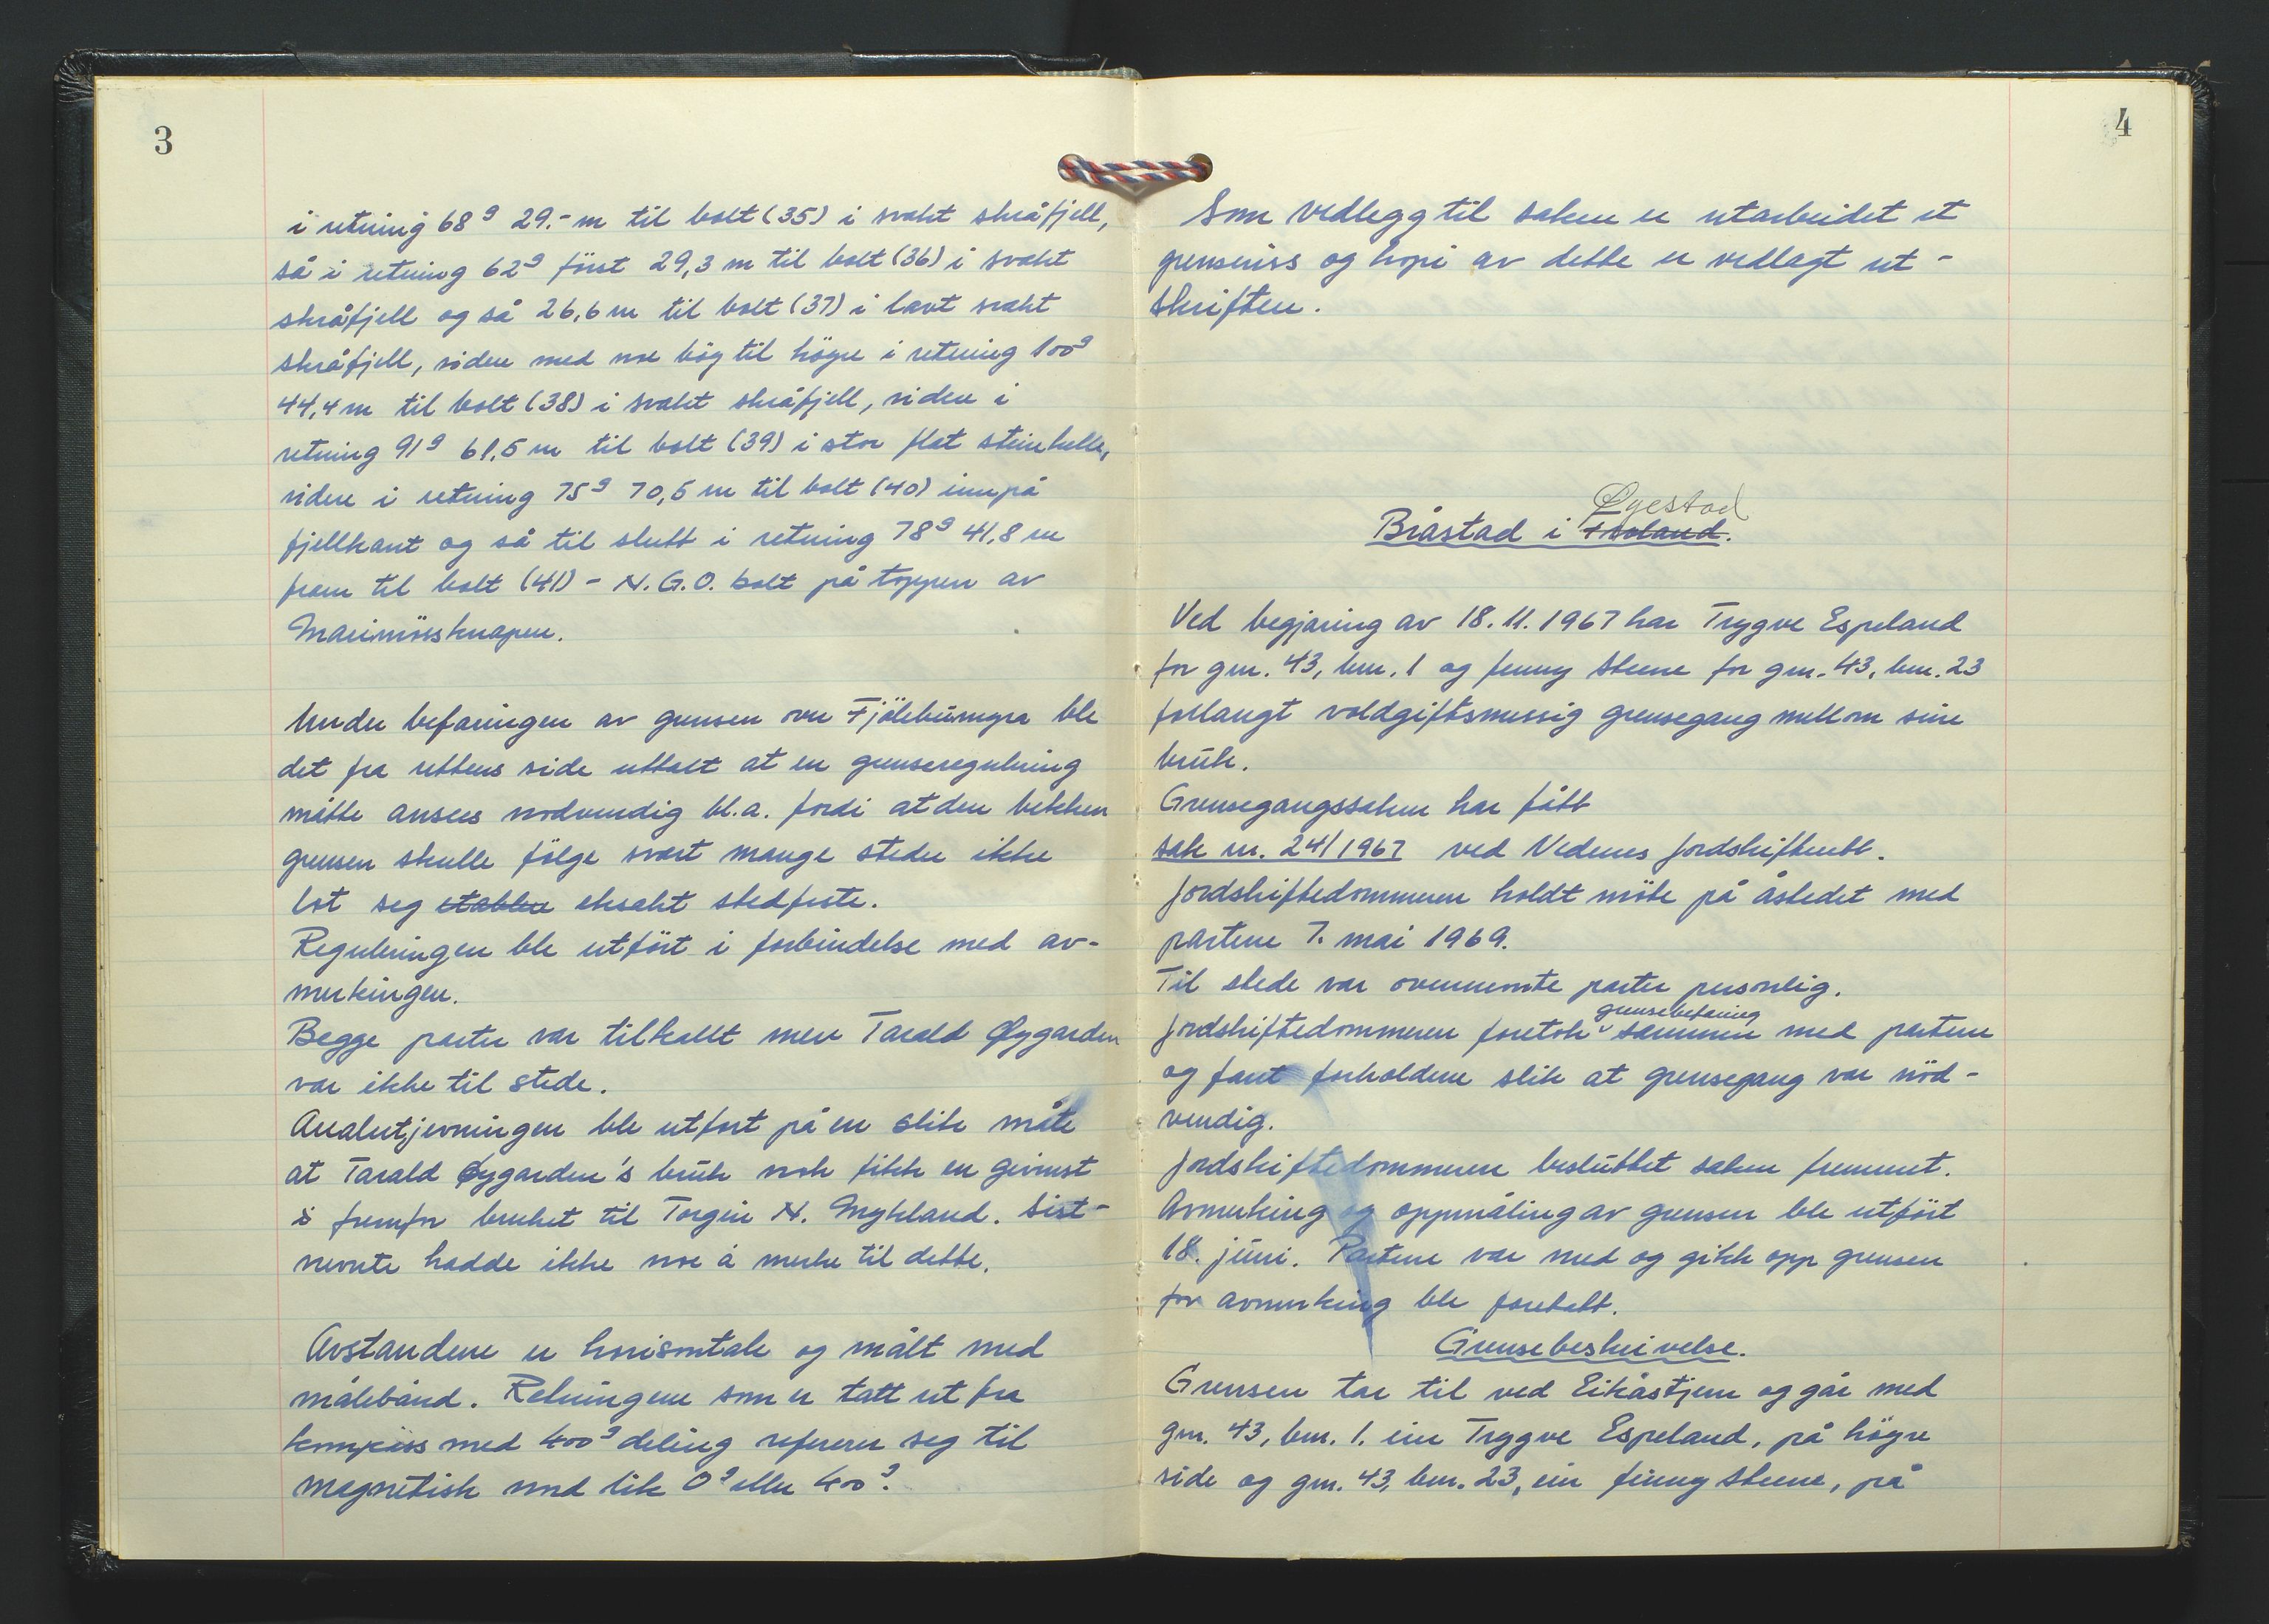 3
i retning 68g 29.- m til bolt (35) i svakt skråfjell,
så i retning 62g först 29,3 m til bolt (36) i svakt
skråfjell og så 26,6 m til bolt (37) i lavt svakt
skråfjell, siden med noe bög til högre i retning 100g
44,4 m til bolt (38) i svakt skråfjell, siden i
retning 91g 61,5 m til bolt (39) i stor flat steinhelle,
videre i retning 75g 70,5 m til bolt (40) innpå
fjellkant og så til slutt i retning 78g 41,8 m
fram til bolt (41) - N.G.O. bolt på toppen av
Under befaringen av grensen over Fjölebumyra ble
det fra rettens side uttalt at en grenseregulering
måtte ansees nodvendig bl.a. fordi at den bekken
grensen skulle fölge svært mange steder ikke
lot seg eksakt stedfeste.
Reguleringen ble utfört i forbindelse med av-
merkingen.
Begge parter var tilkallt men Tarald Øygarden
var ikke til stede.
Arealutjevningen ble utfört på en slik måte
at Tarald Øygarden's bruk nok fikk en gevinst
fremfor bruket til Torgeir N. Mykland. Sist-
nevnte hadde ikke noe å merke til dette.
Avstandene er horisontale og målt med
målebånd. Retningene som er tatt ut fra
kompass med 400g deling referer seg til
magnetisk nord lik 0g eller 400g.
4
Som vedlegg til saken er utarbeidet et
grenseriss og kopi av dette er vedlagt ut-
skriften.
Øyestad
Bråstad i Froland.
Ved begjæring av 18.11.1967 har Trygve Espeland
for gnr. 43, bnr. 1 og Jenny Steene for gnr. 43, bnr. 23
forlangt voldgiftsmessig grensegang mellom sine
bruk.
Grensegangssaken har fått
sak nr. 24/1967 ved Nedenes jordskifterett.
Jordskiftedommeren holdt möte på åstedet med
partene 7. mai 1969.
Til stede var ovennevnte parter personlig.
grensebefaring
Jordskiftedommeren foretok sammen med partene
og fant forholdene slik at grensegang var nöd-
vendig.
Jordskiftedommeren besluttet saken fremmet.
Avmerking og oppmåling av grensen ble utfört
18. juni. Partene var med og gikk opp grensen
för avmerking ble foretatt.
Grensebeskrivelse.
Grensen tar til ved Eikåstjern og går med
gnr. 43, bnr. 1. eier Trygve Espeland, på högre
side og gnr. 43, bnr. 23, eier Jenny Steene, på